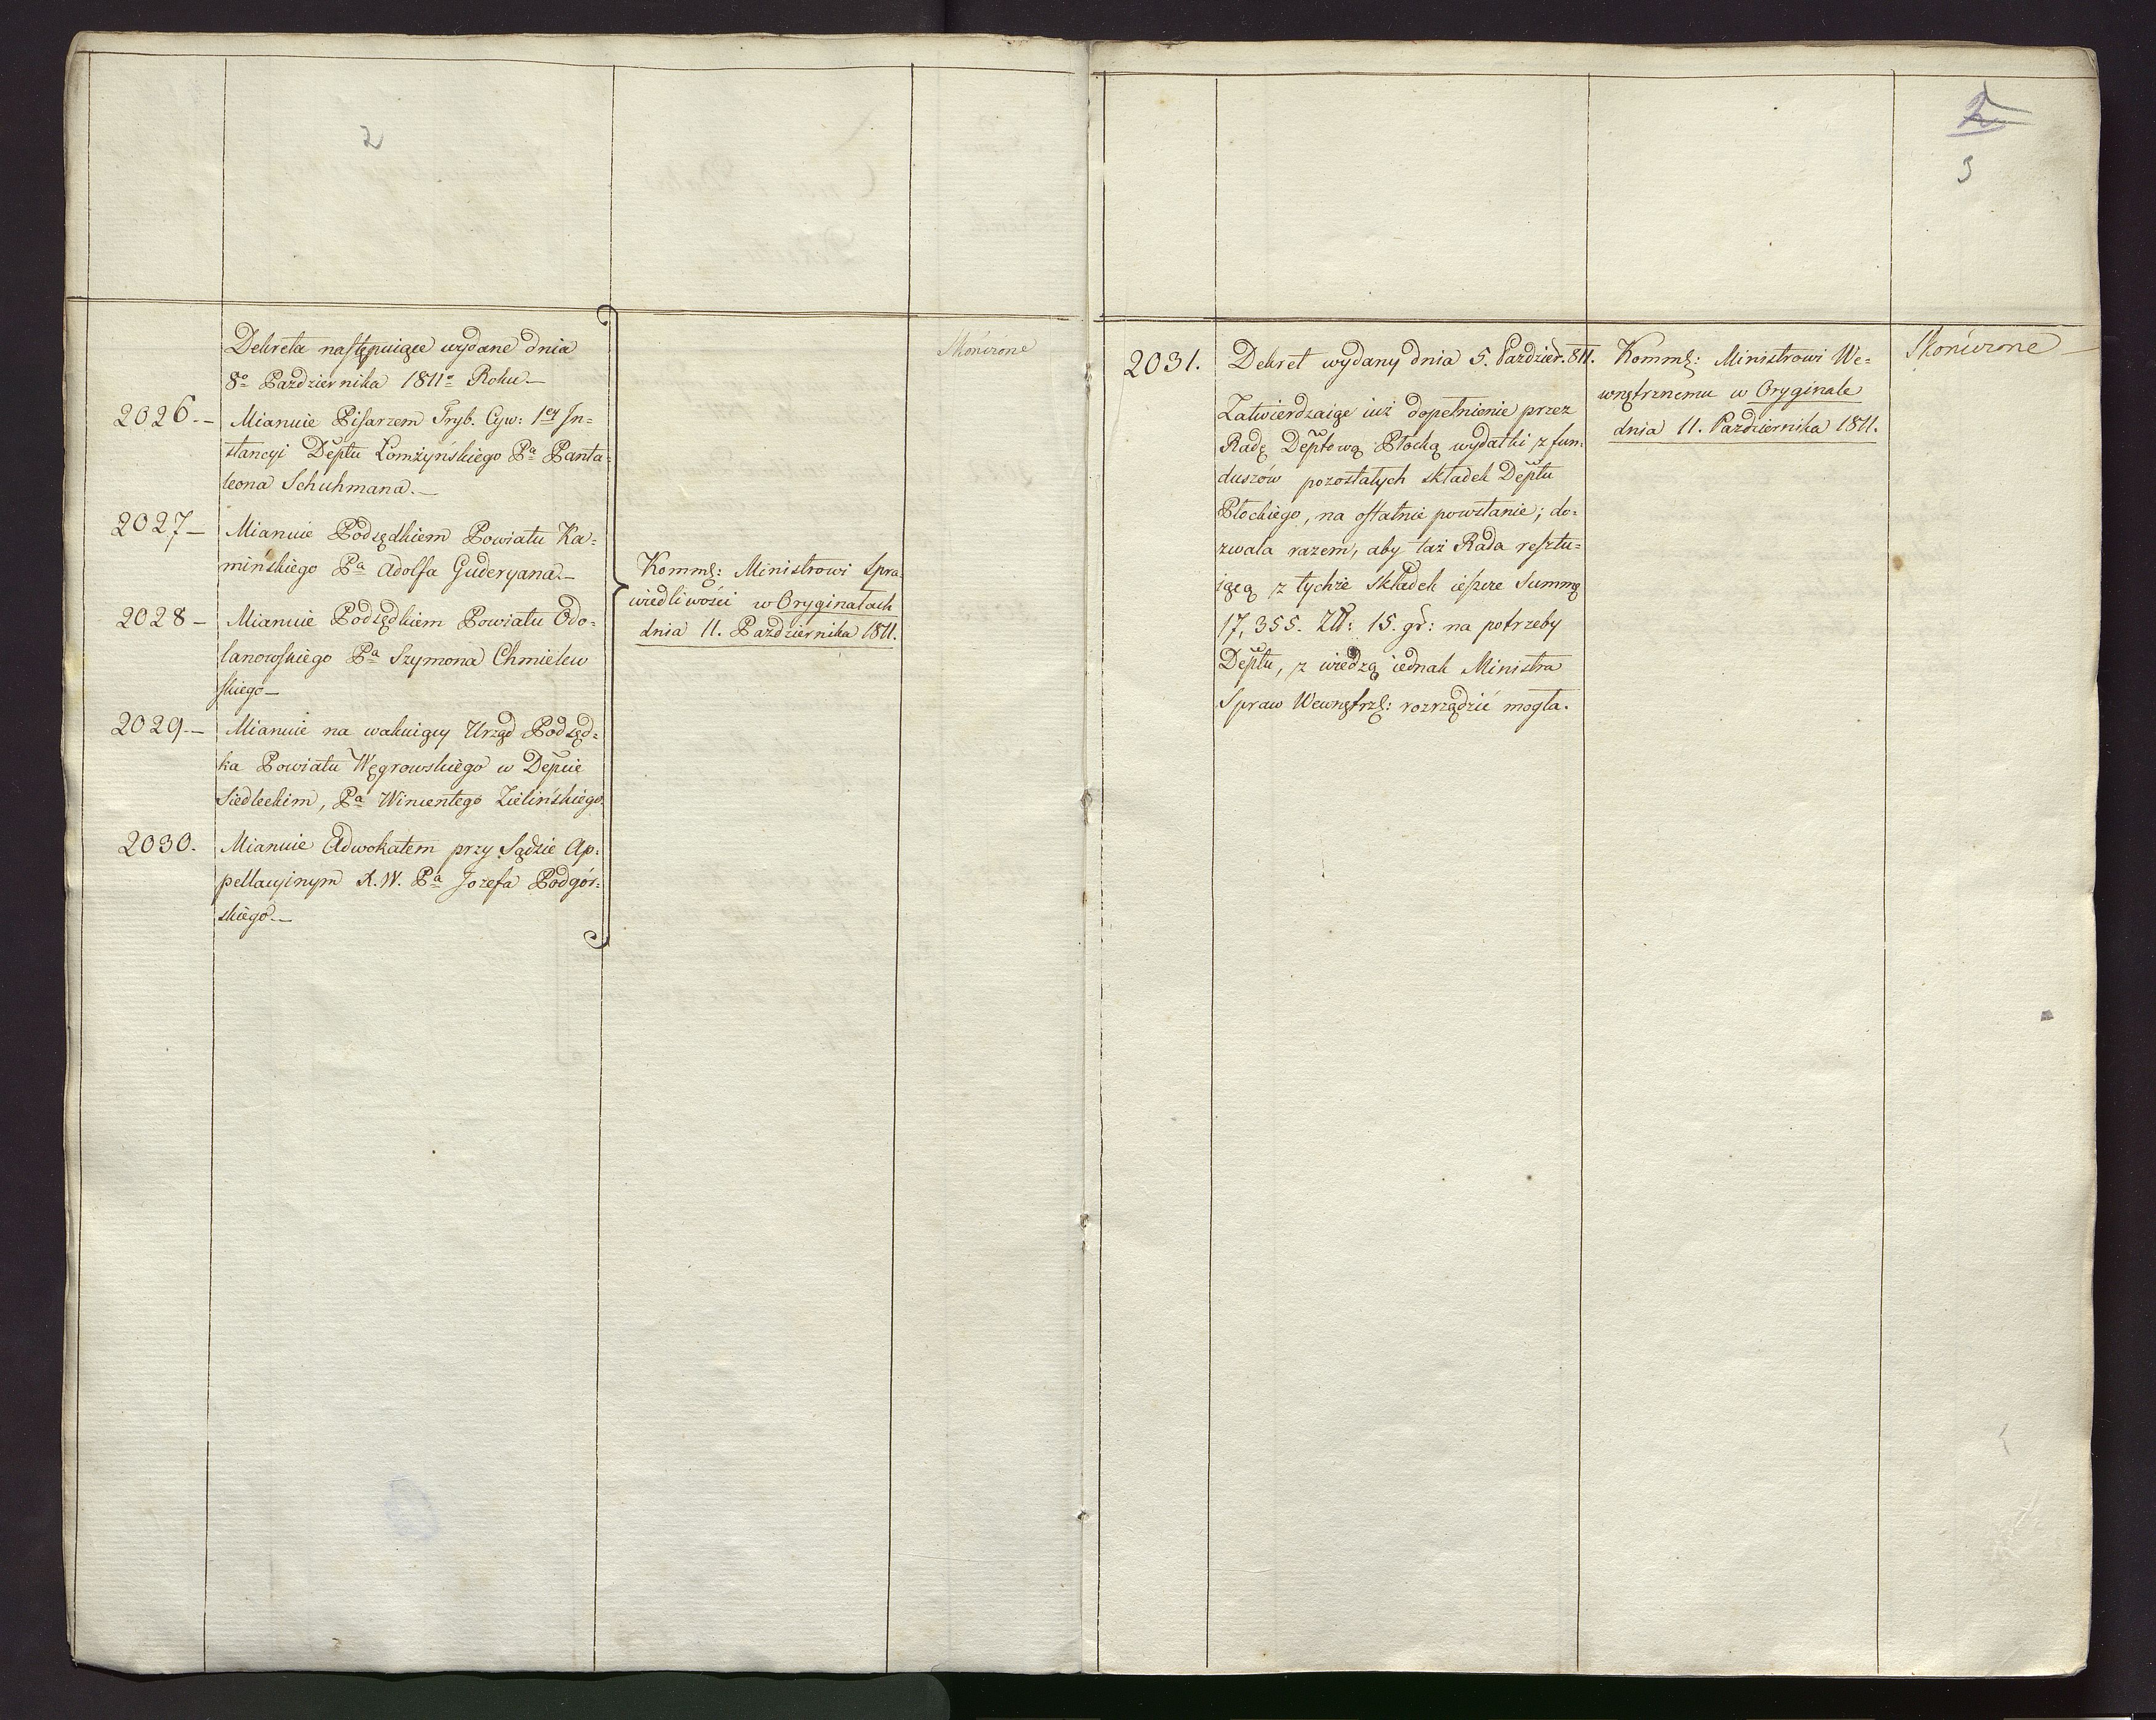 2
Dekreta następuiące wydane dnia
8º Października 1811º Roku.—
2026.— Mianuie Pisarzem Tryb. Cyw: 1ey In=
stancyi Deptu Łomżyńskiego Pa Panta=
leona Schuhmana.—
2027— Mianuie Podsędkiem Powiatu Ka=
mińskiego Pa Adolfa Guderyana.—
2028— Mianuie Podsędkiem Powiatu Odo=
lanowskiego Pa Szymona Chmielew
skiego—
2029.— Mianuie na wakuiący Urząd Podsęd=
ka Powiatu Węgrowskiego w Depcie
Siedleckim, Pa Wincentego Zielińskiego.
2030. Mianuie Adwokatem przy Sądzie Ap=
pellacyinym X.W. Pa Jozefa Podgór=
skiego.—
Komm: Ministrowi Spra=
wiedliwości w Oryginałach
dnia 11. Października 1811.
Skończone
2
3
2031. Dekret wydany dnia 5. Paździer. 811.
Zatwierdzaiąc iuż dopełnienie przez
Radę Deptową Płocką wydatki z fun=
duszów pozostałych składek Deptu
Płockiego, na ostatnie powstanie; do=
zwala razem, aby taż Rada resztu=
iącą z tychże składek ieszcze Summę
17,355. Zł: 15. gr: na potrzeby
Deptu, z wiedzą iednak Ministra
Spraw Wewnętrz: rozrządzić mogła.
Komm: Ministrowi We=
wnętrznemu w Oryginale
dnia 11. Października 1811.
Skończone —